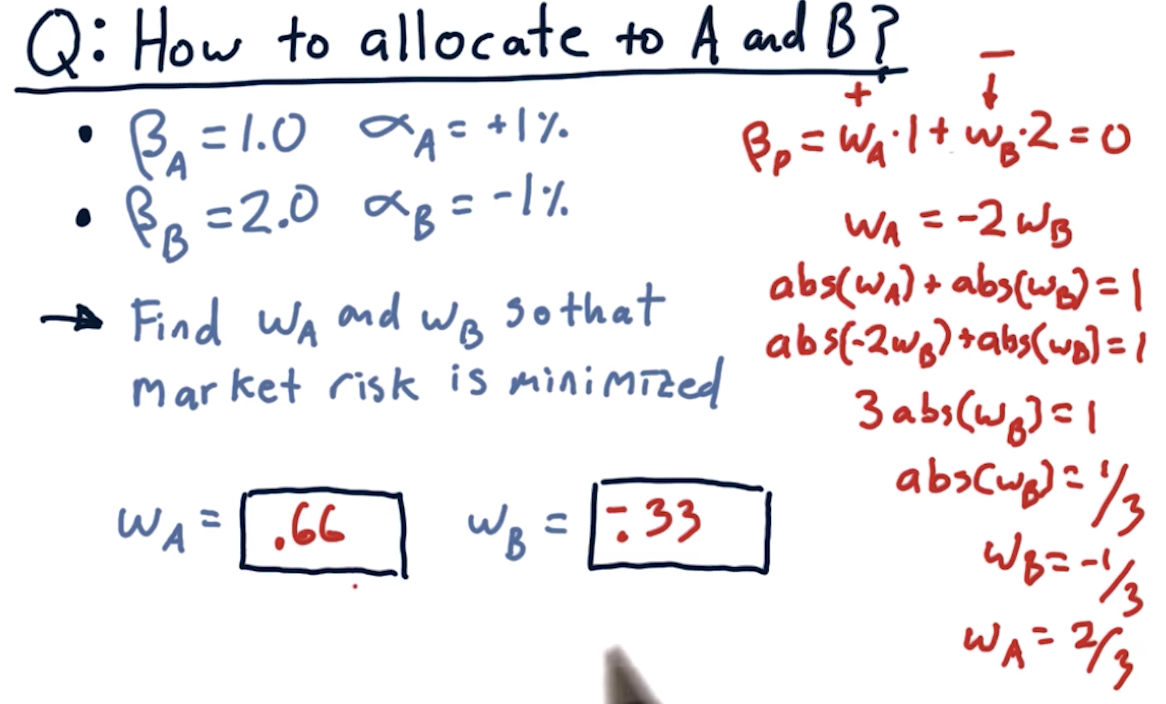 Q: How to allocate to A and B?
• β_A = 1.0 α_A = +1%
• β_B = 2.0 α_B = -1%
→ Find w_A and w_B so that
market risk is minimized
w_A = .66 w_B = -.33
+ −
↓
β_p = w_A·1 + w_B·2 = 0
w_A = -2 w_B
abs(w_A) + abs(w_B) = 1
abs(-2w_B) + abs(w_B) = 1
3 abs(w_B) = 1
abs(w_B) = 1/3
w_B = -1/3
w_A = 2/3